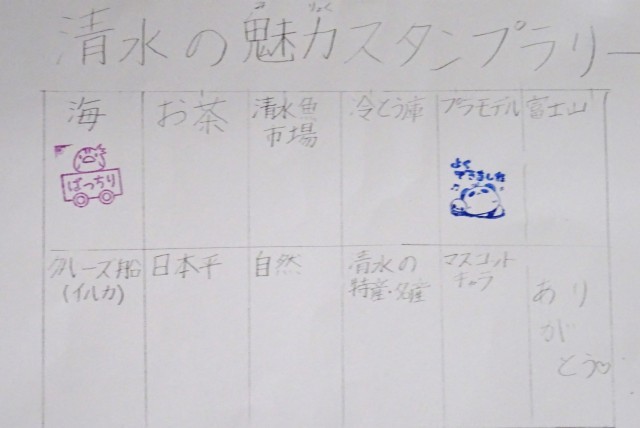 みりょく
清水の魅力スタンプラリー
海
ばっちり
お茶
清水魚
市場
冷とう庫
プラモデル
よく
できました
富士山
クルーズ船
(イルカ)
日本平
自然
清水の
特産・名産
マスコット
キャラ
あり
が
とう♡